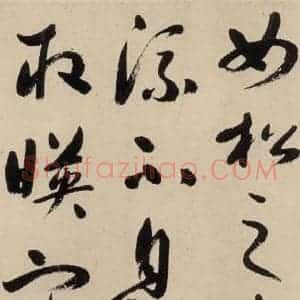 如松之
流不息
取映容
Shufaziliao.com